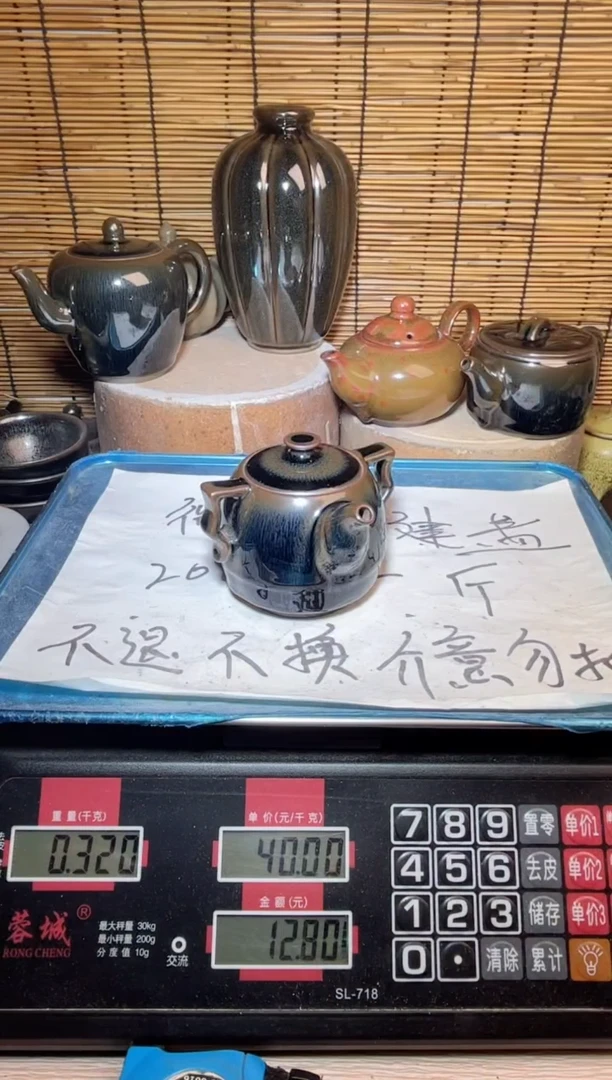 建盏
20 一斤
不退不换介意勿拍
重量(千克)
0.320
单价(元/千克)
40.00
金额(元)
12.80
蓉城®
RONG CHENG
最大秤量 30kg
最小秤量 200g
分度值 10g
交流
SL-718
7 8 9 置零 单价1
4 5 6 去皮 单价2
1 2 3 储存 单价3
0 · 清除 累计